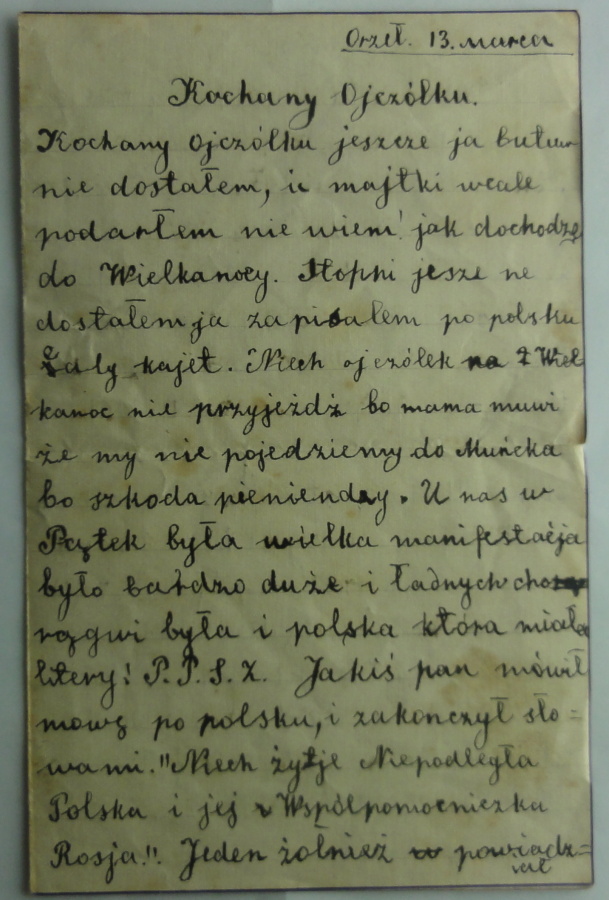 Orzeł. 13. marca
Kochany Ojczólku.
Kochany ojczólku jeszcze ja butuw
nie dostałem, i majtki wcale
podarłem nie wiem! jak dochodzę
do Wielkanocy. Stopni jesze ne
dostałem ja zapisalem po polsku
caly kajet. Niech ojczólek na Wiel
kanoc nie przyjeżdż bo mama muwi
że my nie pojedziemy do Muńcka
bo szkoda pieniendzy. U nas w
Pcątek była wielka manifestacja
było bardzo duże i ładnych cho
rągwi była i polska która miała
litery! P.P.S.Z. Jakiś pan mówił
mowę po polsku, i zakonczył sło=
wami."Niech żyje Niepodległa
Polska i jej Wspólpomocniczka
Rosja!". Jeden żołnież powiadz=
iał